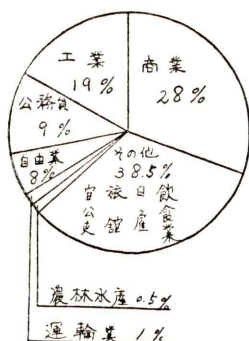 工業
19%
商業
28%
公務員
9%
自由業
8%
その他
38.5%
官公吏
旅館
日産
飲食業
農林水産 0.5%
運輸業 1%